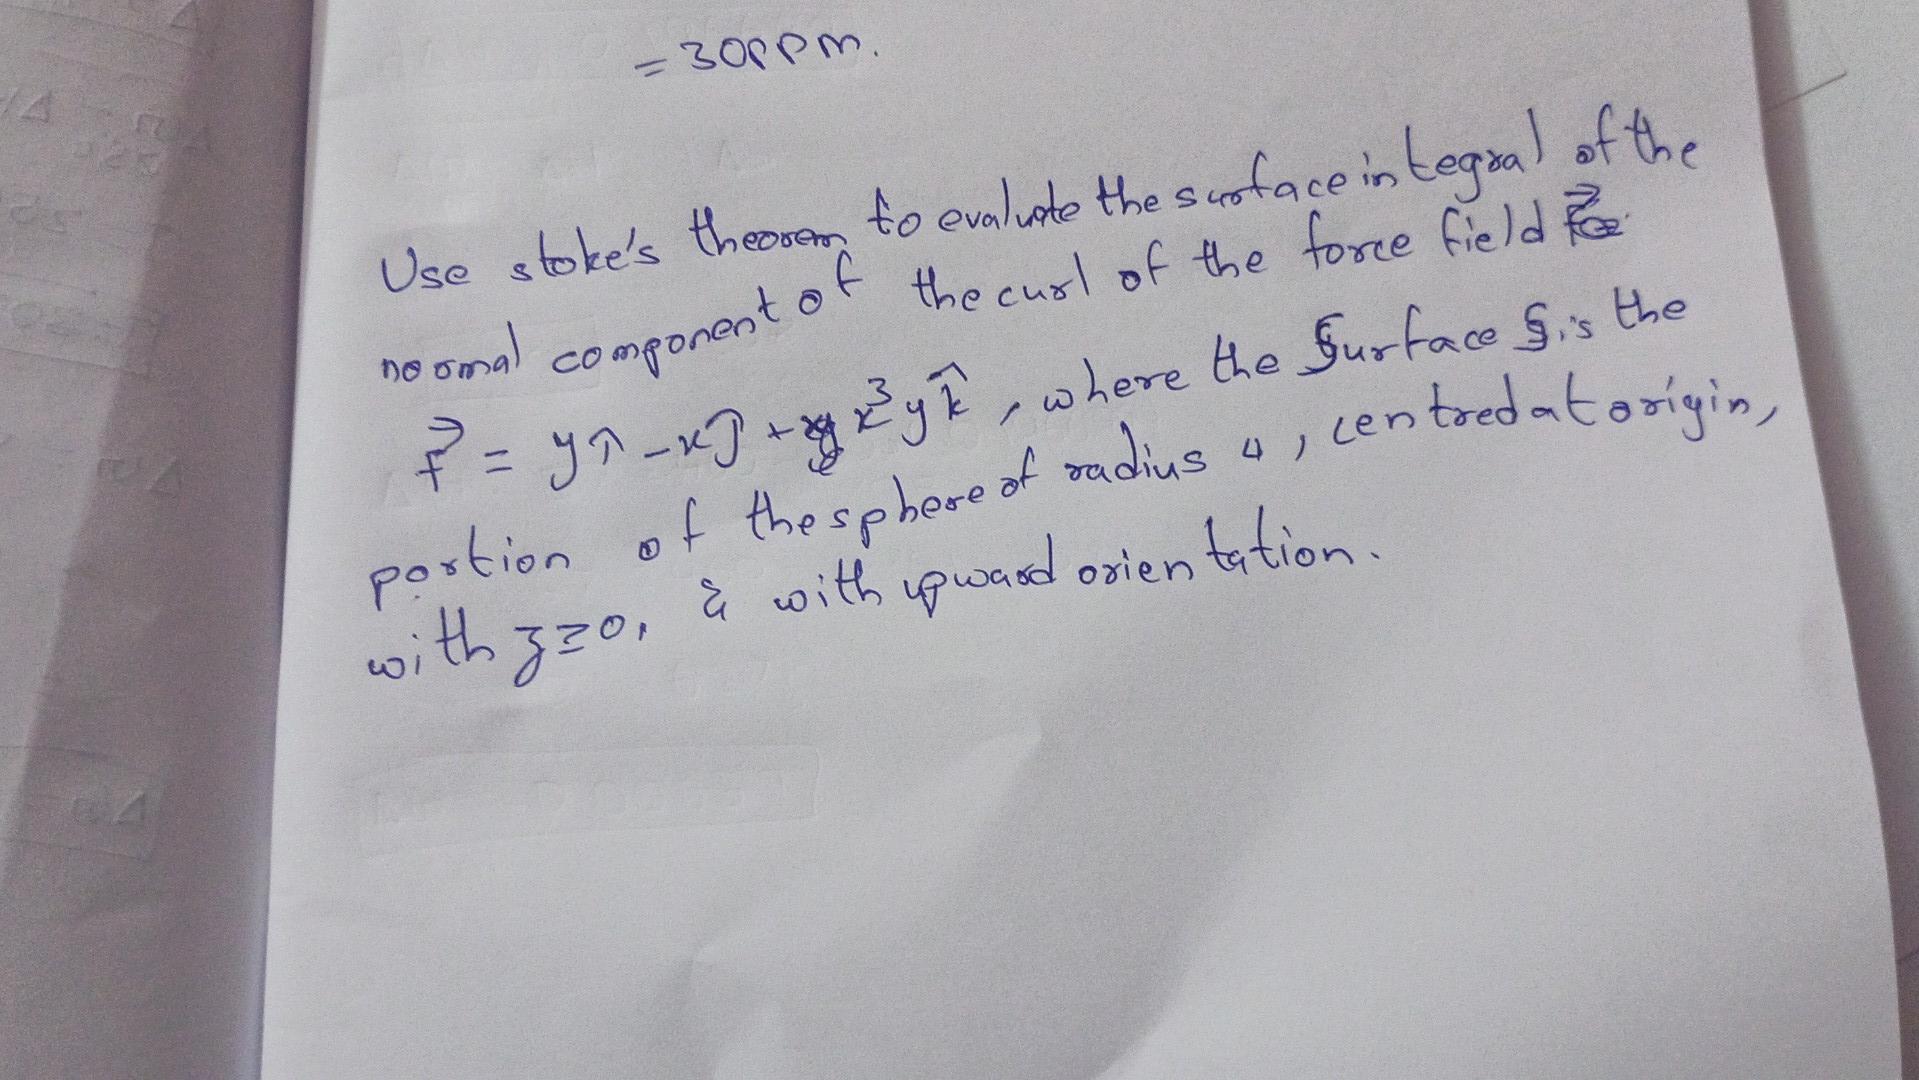 = 30ppm.
Use stoke's theorem to evaluate the surface integral of the
normal component of the curl of the force field
F⃗ = yî - xĵ + x³yk̂, where the Surface S, is the
portion of the sphere of radius 4, centred at origin,
with z≥0, & with upward orientation.